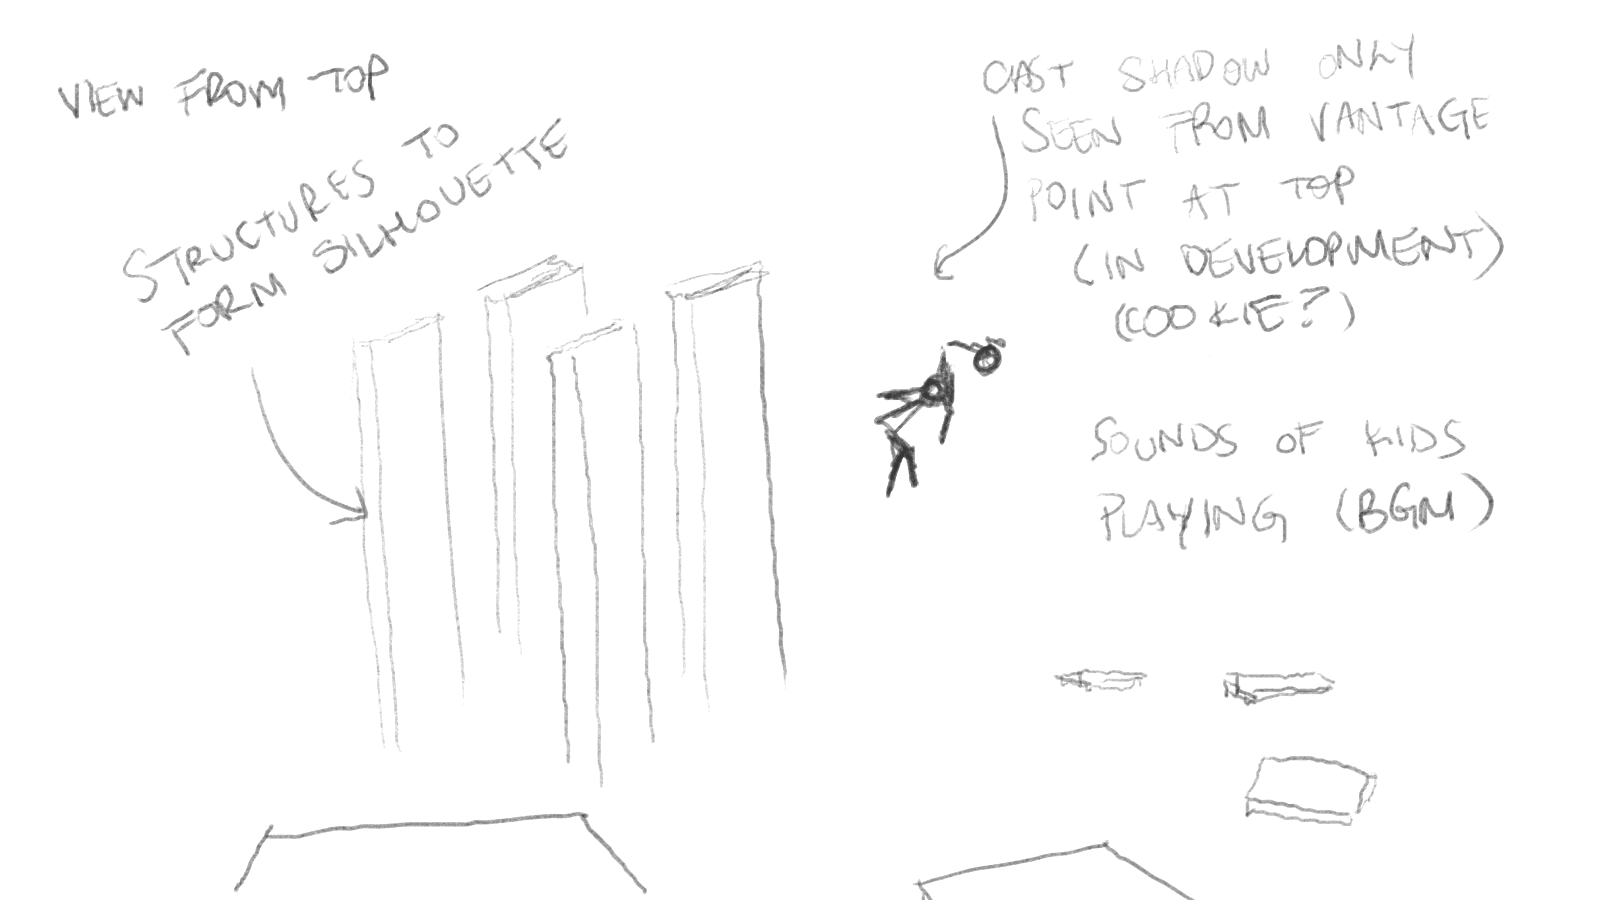 VIEW FROM TOP
STRUCTURES TO
FORM SILHOUETTE
CAST SHADOW ONLY
SEEN FROM VANTAGE
POINT AT TOP
(IN DEVELOPMENT)
(COOKIE?)
SOUNDS OF KIDS
PLAYING (BGM)